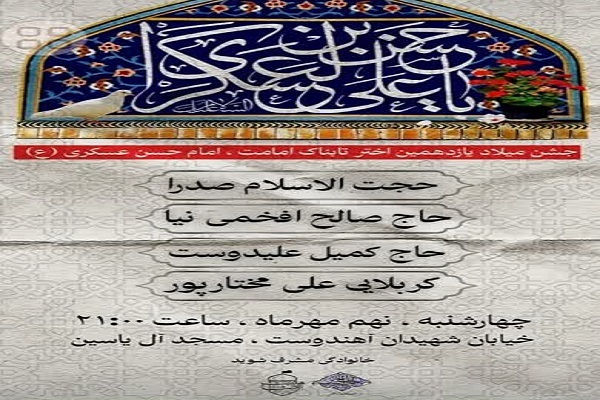 یا حسن بن علی العسکری
جشن میلاد یازدهمین اختر تابناک امامت ، امام حسن عسکری (ع)
حجت الاسلام صدرا
حاج صالح افخمی نیا
حاج کمیل علیدوست
کربلایی علی مختارپور
چهارشنبه ، نهم مهرماه ، ساعت ۲۱:۰۰
خیابان شهیدان آهندوست ، مسجد آل یاسین
خانوادگی مشرف شوید